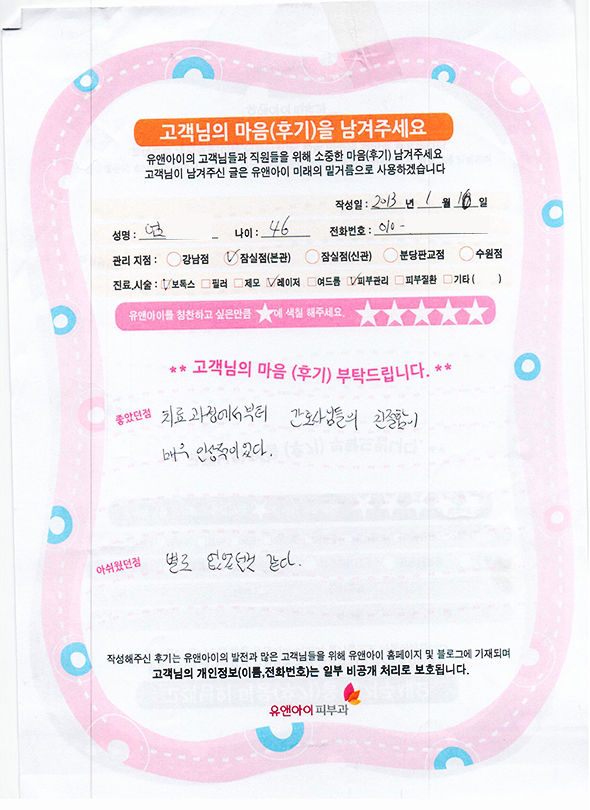 고객님의 마음(후기)을 남겨주세요
유앤아이의 고객님들과 직원들을 위해 소중한 마음(후기) 남겨주세요
고객님이 남겨주신 글은 유앤아이 미래의 밑거름으로 사용하겠습니다
작성일 : 2013 년 1 월 16 일
성명 : 나이 : 46 전화번호 : 010-
관리 지점 : 강남점 잠실점(본관) 잠실점(신관) 분당판교점 수원점
진료,시술 : 보톡스 필러 제모 레이저 여드름 피부관리 피부질환 기타 ( )
유앤아이를 칭찬하고 싶은만큼 ★에 색칠 해주세요. ★★★★★
** 고객님의 마음 (후기) 부탁드립니다. **
좋았던점 치료과정에서부터 간호사님들의 친절함이
매우 인상적이었다.
아쉬웠던점 별로 없었던것 같다.
작성해주신 후기는 유앤아이의 발전과 많은 고객님들을 위해 유앤아이 홈페이지 및 블로그에 기재되며
고객님의 개인정보(이름,전화번호)는 일부 비공개 처리로 보호됩니다.
유앤아이 피부과